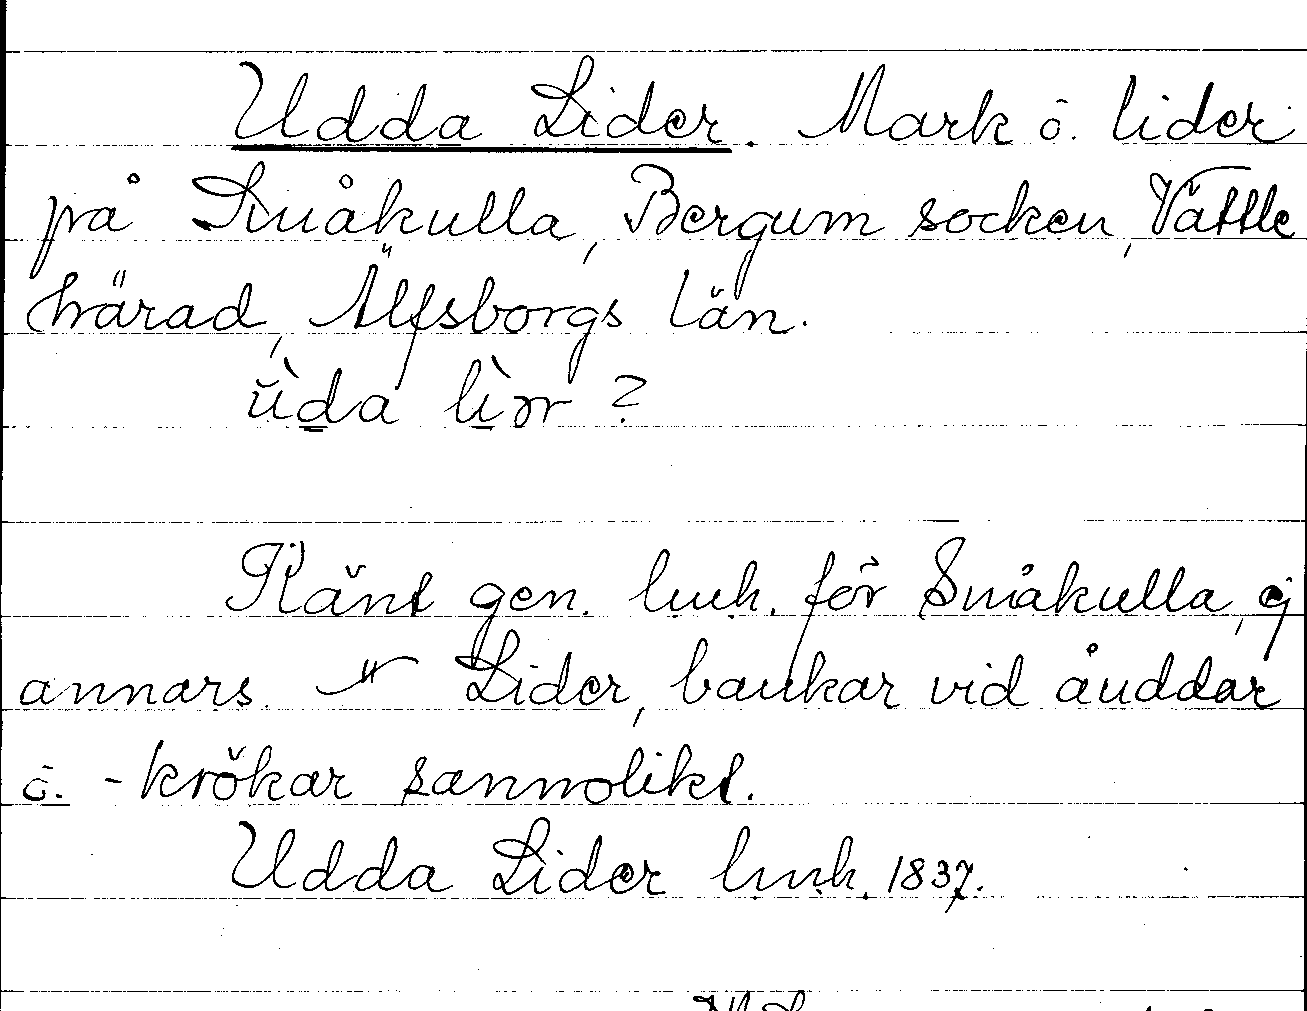 Udda Lider. Mark ō. lider
på Småkulla, Bergum socken, Vättle
härad, Älfsborgs län.
ùda lìrr ?
Känt gen. lmh. för Småkulla, ej
annars. Lider, bankar vid åuddar
ō. -krökar sannolikt.
Udda Lider lmh. 1837.